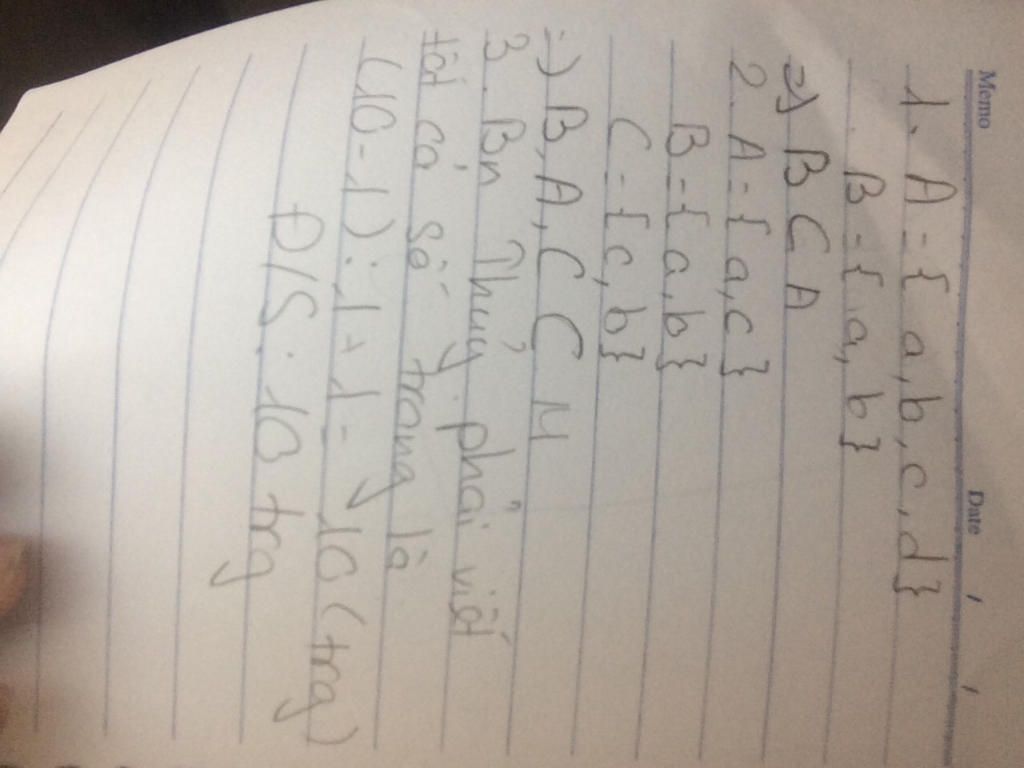 Memo Date / /
1. A = { a, b, c, d}
B = { a, b}
=) B ⊂ A
2. A = { a, c}
B = { a, b}
C = { c, b}
=) B, A, C ⊂ M
3. Bn Thủy phải viết
tất cả số trang là
(10 - 1) : 1 + 1 = 10 ( trg )
Đ/S : 10 trg